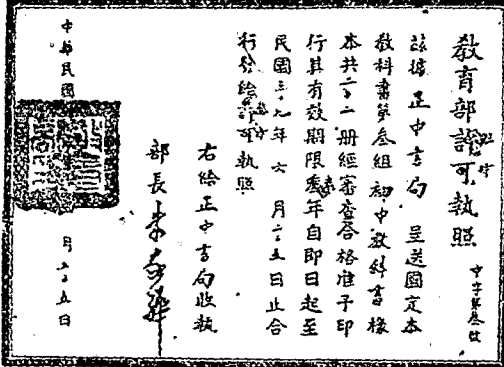 教育部許可執照
中字第叁號
茲據正中書局呈送國定本
教科書第叁組初中教科書樣
本共二二册經審查合格准予印
行其有效期限叁年自即日起至
民國三九年六月二五日止合
行發給許可執照
右給正中書局收執
部長朱家驊
中華民國
月二五日